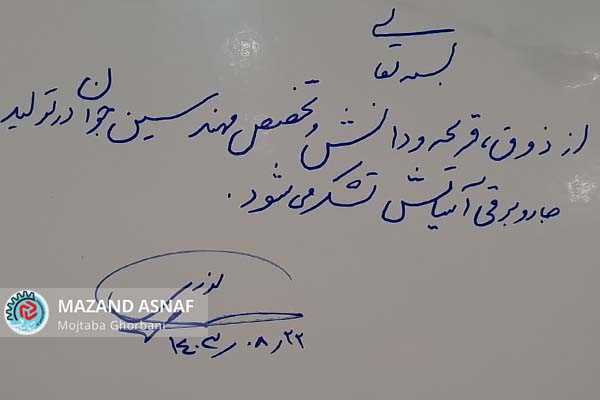 بسمه تعالی
از ذوق، قریحه و دانش و تخصص مهندسین جوان در تولید
جاروبرقی آسیاتش تشکر می‌شود.
۱۴۰۳/۰۸/۲۲
MAZAND ASNAF
Mojtaba Ghorbani